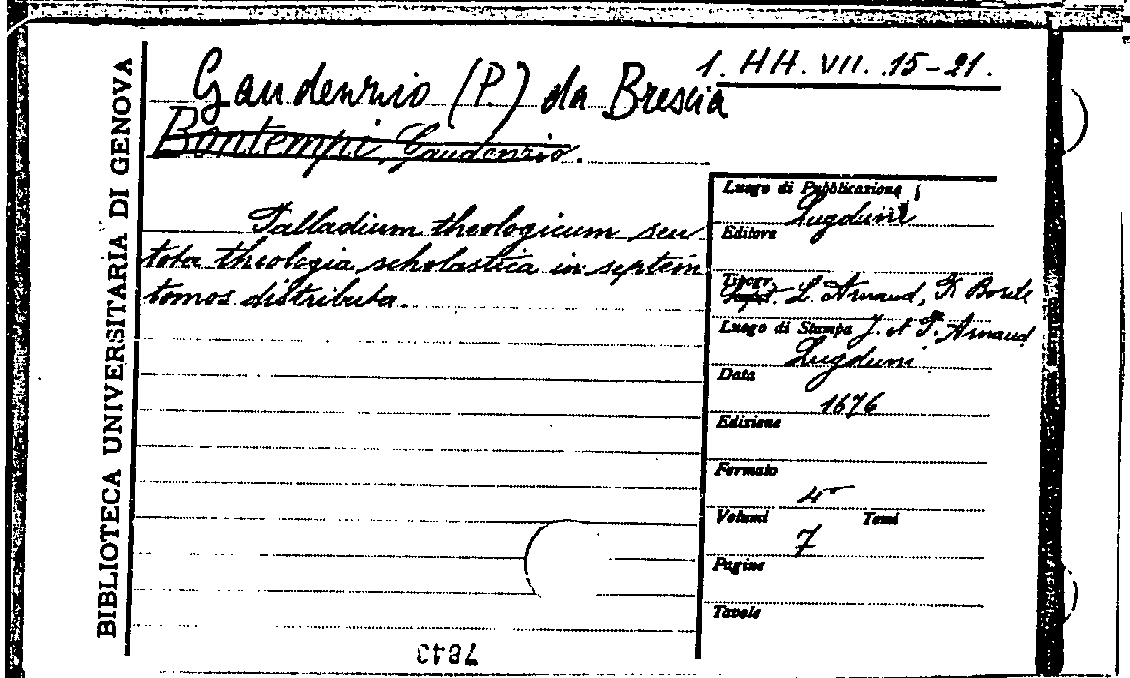 1. HH. VII. 15-21.
Gaudenzio (P.) da Brescia
Bontempi, Gaudenzio.
Palladium theologicum seu
tota theologia scholastica in septem
tomos distributa.
BIBLIOTECA UNIVERSITARIA DI GENOVA
Luogo di Pubblicazione
Lugduni
Editore
Tipogr.
L. Arnaud, P. Borde
Luogo di Stampa J. et P. Arnaud
Lugduni
Data
1676
Edizione
Formato
4°
Volumi Tomi
7
Pagine
Tavole